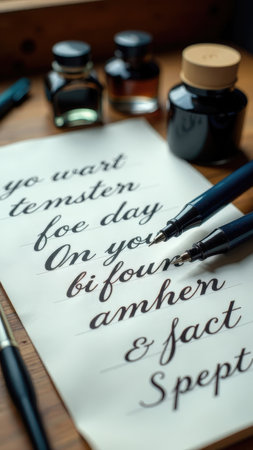 yo wart
temsten
foe day
On you
bifoun
amhen
& fact
Spept